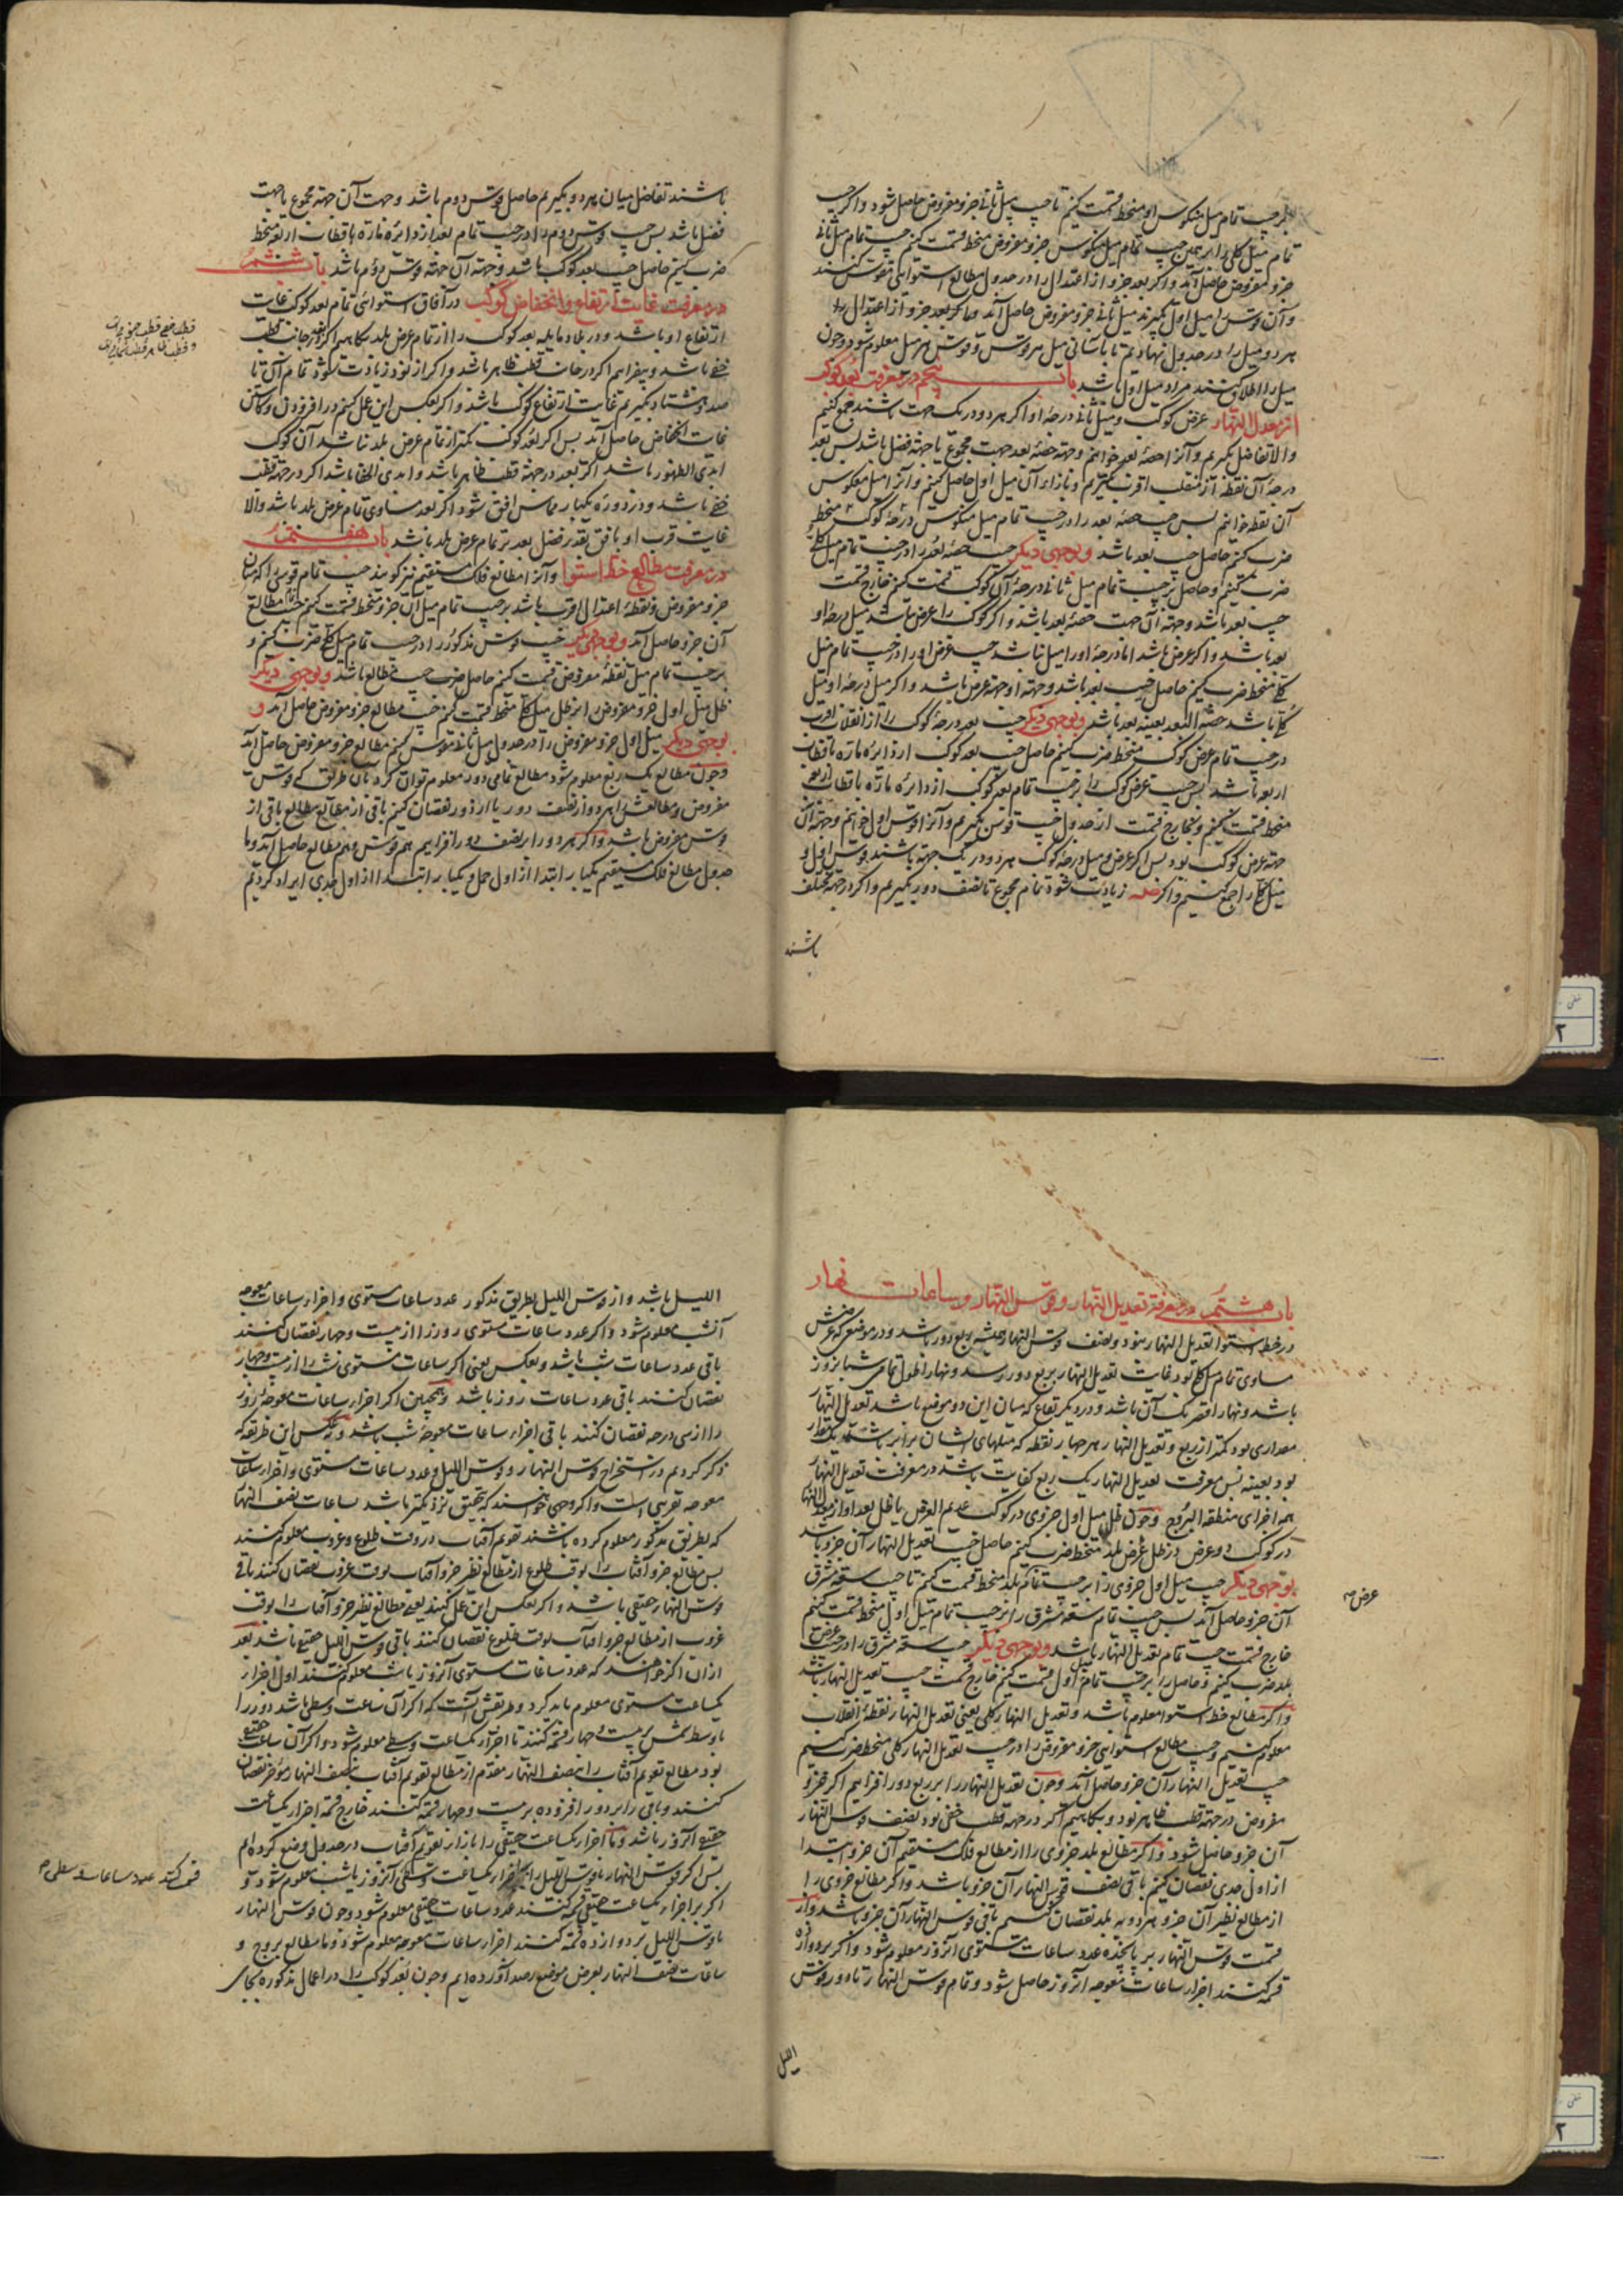 بر جیب تمام میل منکوس او منحط قسمت کنیم تا جیب میل ثانی جزو مفروض حاصل شود و اگر جیب
تمام میل کلی را بر همین جیب تمام میل منکوس جزو مفروض منحط قسمت کنیم جیب تمام میل ثانی
جزو مفروض حاصل آید و اگر بعد جزو از اعتدال را در جدول مطالع استوایی مقوس کنند
و آن قوس را میل اول گیرند میل ثانی جزو مفروض حاصل آید و ما که بعد جزو از اعتدال
هر دو میل را در جدول نهادیم تا بآسانی میل هر قوس و قوس هر میل معلوم شود و چون
میل را اطلاق کنند مراد میل اول باشد باب پنجم در معرفت بعد کوکب
از معدل النهار عرض کوکب و میل ثانی درجۀ او اگر هر دو در یک جهت باشند جمع کنیم
والا تفاضل گیریم و آنرا حصۀ بعد خوانیم و جهة حصۀ بعد جهت مجموع یا جهة فضل باشد پس بعد
درجۀ آن نقطه از منقلب اقرب بگیریم و بازاء آن میل اول حاصل کنیم و آنرا میل معکوس
آن نقطه خوانیم پس جیب حصۀ بعد را در جیب تمام میل منکوس درجۀ کوکب منحط
ضرب کنیم حاصل جیب بعد باشد و بوجهی دیگر جیب حصۀ بعد را در جیب تمام میل کلی
ضرب کنیم و حاصل بر جیب تمام میل ثانی درجۀ آن کوکب قسمت کنیم خارج قسمت
جیب بعد باشد و جهة آن جهت حصۀ بعد باشد و اگر کوکب را عرض نباشد میل درجۀ او
بعد باشد و اگر عرض باشد اما درجۀ او را میل نباشد جیب عرض او را در جیب تمام میل
کلی منحط ضرب کنیم حاصل جیب بعد باشد و جهة او جهة عرض باشد و اگر میل درجۀ او میل
کلی باشد حصة البعد بعینه بعد باشد و بوجهی دیگر جیب بعد درجۀ کوکب را از انقلاب اقرب
در جیب تمام عرض کوکب منحط ضرب کنیم حاصل جیب بعد کوکب از دایرۀ ماره باقطاب
اربعه باشد پس جیب عرض کوکب را بر جیب تمام بعد کوکب از دائره ماره باقطاب اربعه
منحط قسمت کنیم و بخارج قسمت از جدول جیب قوس بگیریم و آنرا قوس اول خوانیم و جهة آن
جهة عرض کوکب بود پس اگر عرض و میل درجۀ کوکب هر دو در یک جهة باشند قوس اول و
میل کلی را جمع کنیم و اگر زیادت شود تمام مجموع تا نصف دور بگیریم و اگر در جهة مختلف
باشند
باشند تفاضل میان هر دو بگیریم حاصل قوس دوم باشد و جهت آن جهة مجموع یا جهت
فضل باشد پس جیب قوس دوم را در جیب تمام بعد از دائرۀ ماره باقطاب اربعه منحط
ضرب کنیم حاصل جیب بعد کوکب باشد و جهة آن جهة قوس دوم باشد باب ششم
در معرفت غایت ارتفاع و انحفاض کوکب در آفاق استوائی تمام بعد کوکب غایت
ارتفاع او باشد و در بلاد مایله بعد کوکب را از تمام عرض بلد بکاهیم اگر در جانب قطب
خفی باشد و بیفزاییم اگر در جانب قطب ظاهر باشد و اگر از نود زیادت شود تمام آن تا
صد و هشتاد بگیریم غایت ارتفاع کوکب باشد و اگر بعکس این عمل کنیم در افزودن و کاستن
غایت انحفاض حاصل آید پس اگر بعد کوکب کمتر از تمام عرض بلد نباشد آن کوکب
ابدی الظهور باشد اگر بعد در جهة قطب ظاهر باشد و ابدی الخفا باشد اگر در جهة قطب
خفی باشد و در دوره یکبار مماس افق شود اگر بعد مساوی تمام عرض بلد باشد والا
غایت قرب او بافق بقدر فضل بعد بر تمام عرض بلد باشد باب هفتم
در معرفت مطالع خط استوا و آنرا مطالع فلک مستقیم نیز گویند جیب تمام قوسی را که میان
جزو مفروض و نقطۀ اعتدال اقرب باشد بر جیب تمام میل آن جزو منحط قسمت کنیم جیب تمام مطالع
آن جزو حاصل آید و بوجهی دیگر جیب قوس مذکور را در جیب تمام میل کلی ضرب کنیم و
بر جیب تمام میل نقطۀ مفروض قسمت کنیم حاصل ضرب جیب مطالع باشد و بوجهی دیگر
ظل میل اول جزو مفروض را بر ظل میل کلی منحط قسمت کنیم جیب مطالع جزو مفروض حاصل آید و
بوجهی دیگر میل اول جزو مفروض را در جدول میل ثانی مقوس کنیم مطالع جزو مفروض حاصل آید
و چون مطالع یک ربع معلوم شود مطالع تمامی دور معلوم توان کرد بآن طریق که قوس
مفروض و مطالعش را هر دو از نصف دور یا از دور نقصان کنیم باقی از مطالع مطالع باقی از
قوس مفروض باشد و اگر هر دو را بر نصف دور افزاییم هم قوس و هم مطالع حاصل آید و ما
جدول مطالع فلک مستقیم یکبار ابتدا از اول حمل و یکبار ابتدا از اول جدی ایراد کردیم
باب هشتم در معرفة تعدیل النهار و قوس النهار و ساعات نهار
در خط استوا تعدیل النهار نبود و نصف قوس النهار همیشه ربع دور باشد و در موضعی که عرضش
مساوی تمام میل کلی بود غایت تعدیل النهار بربع دور رسد و نهار اطول تمامی شبانروز
باشد و نهار اقصر یک آن باشد و در دیگر بقاع که میان این دو موضع باشد تعدیل النهار
مقداری بود کمتر از ربع و تعدیل النهار هر چهار نقطه که میلهای ایشان برابر باشد یک مقدار
بود بعینه پس معرفت تعدیل النهار یک ربع کفایت باشد در معرفت تعدیل النهار
همه اجزای منطقة البروج و چون ظل میل اول جزوی در کوکب عدیم العرض یا ظل بعد او از معدل النهار
در کوکب ذو عرض در ظل عرض بلد منحط ضرب کنیم حاصل جیب تعدیل النهار آن جزو باشد
بوجهی دیگر جیب میل اول جزوی را بر جیب تمام بلد منحط قسمت کنیم تا جیب سعة مشرق
آن جزو حاصل آید پس جیب تمام سعة مشرق را بر جیب تمام میل اول منحط قسمت کنیم
خارج قسمت جیب تمام تعدیل النهار باشد و بوجهی دیگر جیب سعة مشرق را در جیب عرض
بلد ضرب کنیم و حاصل را بر جیب تمام میل اول قسمت کنیم خارج قسمت جیب تعدیل النهار باشد
و اگر مطالع خط استوا معلوم باشد و تعدیل النهار کلی یعنی تعدیل النهار نقطۀ انقلاب
معلوم کنیم و جیب مطالع استوایی جزو مفروض را در جیب تعدیل النهار کلی منحط ضرب کنیم
جیب تعدیل النهار آن جزو حاصل آید و چون تعدیل النهار را بر ربع دور افزاییم اگر جزو
مفروض در جهة قطب ظاهر بود و بکاهیم اگر در جهة قطب خفی بود نصف قوس النهار
آن جزو حاصل شود و اگر مطالع بلد جزوی را از مطالع فلک مستقیم آن جزو ابتدا
از اول جدی نقصان کنیم باقی نصف قوس النهار آن جزو باشد و اگر مطالع جزوی را
از مطالع نظیر آن جزو هر دو به بلد نقصان کنیم باقی قوس النهار آن جزو باشد و از
قسمت قوس النهار بر پانجده عدد ساعات مستوی آنروز معلوم شود و اگر بر دوازده
قسمه کنند اجزاء ساعات معوجه آنروز حاصل شود و تمام قوس النهار تا دور قوس
عرض صح
اللیل
اللیل باشد و از قوس اللیل بطریق مذکور عدد ساعات مستوی و اجزاء ساعات معوجه
آنشب معلوم شود و اگر عدد ساعات مستوی روز را از بیست و چهار نقصان کنند
باقی عدد ساعات شب باشد و بعکس یعنی اگر ساعات مستوی شب را از بیست و چهار
نقصان کنند باقی عدد ساعات روز باشد و همچنین اگر اجزاء ساعات معوجۀ روز
را از سی درجه نقصان کنند باقی اجزاء ساعات معوجۀ شب باشد و بعکس این طریقه که
ذکر کردیم در استخراج قوس النهار و قوس اللیل و عدد ساعات مستوی و اجزاء ساعات
معوجه تقریبی است و اگر وجهی خواهند که بتحقیق نزدیکتر باشد ساعات نصف النهار
که بطریق مذکور معلوم کرده باشند تقویم آفتاب در وقت طلوع و غروب معلوم کنند
پس مطالع جزو آفتاب را بوقت طلوع از مطالع نظیر جزو آفتاب بوقت غروب نقصان کنند باقی
قوس النهار حقیقی باشد و اگر بعکس این عمل کنند یعنی مطالع نظیر جزو آفتاب را بوقت
غروب از مطالع جزو آفتاب بوقت طلوع نقصان کنند باقی قوس اللیل حقیقی باشد بعد
از آن اگر خواهند که عدد ساعات مستوی آنروز یا شب معلوم کنند اول اجزاء
یکساعت مستوی معلوم باید کرد و طریقش آنست که اگر آن ساعت وسطی باشد دور را
با وسط شمس بر بیست و چهار قسمه کنند تا اجزاء یکساعت وسطی معلوم شود و اگر آن ساعت حقیقی
بود مطالع تقویم آفتاب را بنصف النهار مقدم از مطالع تقویم آفتاب بنصف النهار مؤخر نقصان
کنند و باقی را بر دور افزوده بر بیست و چهار قسمه کنند خارج قسمه اجزاء یکساعت
حقیقی آنروز باشد و ما اجزاء یکساعت حقیقی را بازاء تقویم آفتاب در جدول وضع کرده‌ایم
پس اگر قوس النهار یا قوس اللیل را بر اجزاء یکساعت وسطی آنروز یا شب معلوم شود و
اگر بر اجزاء یکساعت حقیقی قسمه کنند عدد ساعات حقیقی معلوم شود و چون قوس النهار
یا قوس اللیل بر دوازده قسمه کنند اجزاء ساعات معوجه معلوم شود و ما مطالع بروج و
ساعات نصف النهار بعرض موضع رصد آورده‌ایم و چون بعد کوکب را در اعمال مذکوره بجای
قسمت کنند عدد ساعات وسطی صح